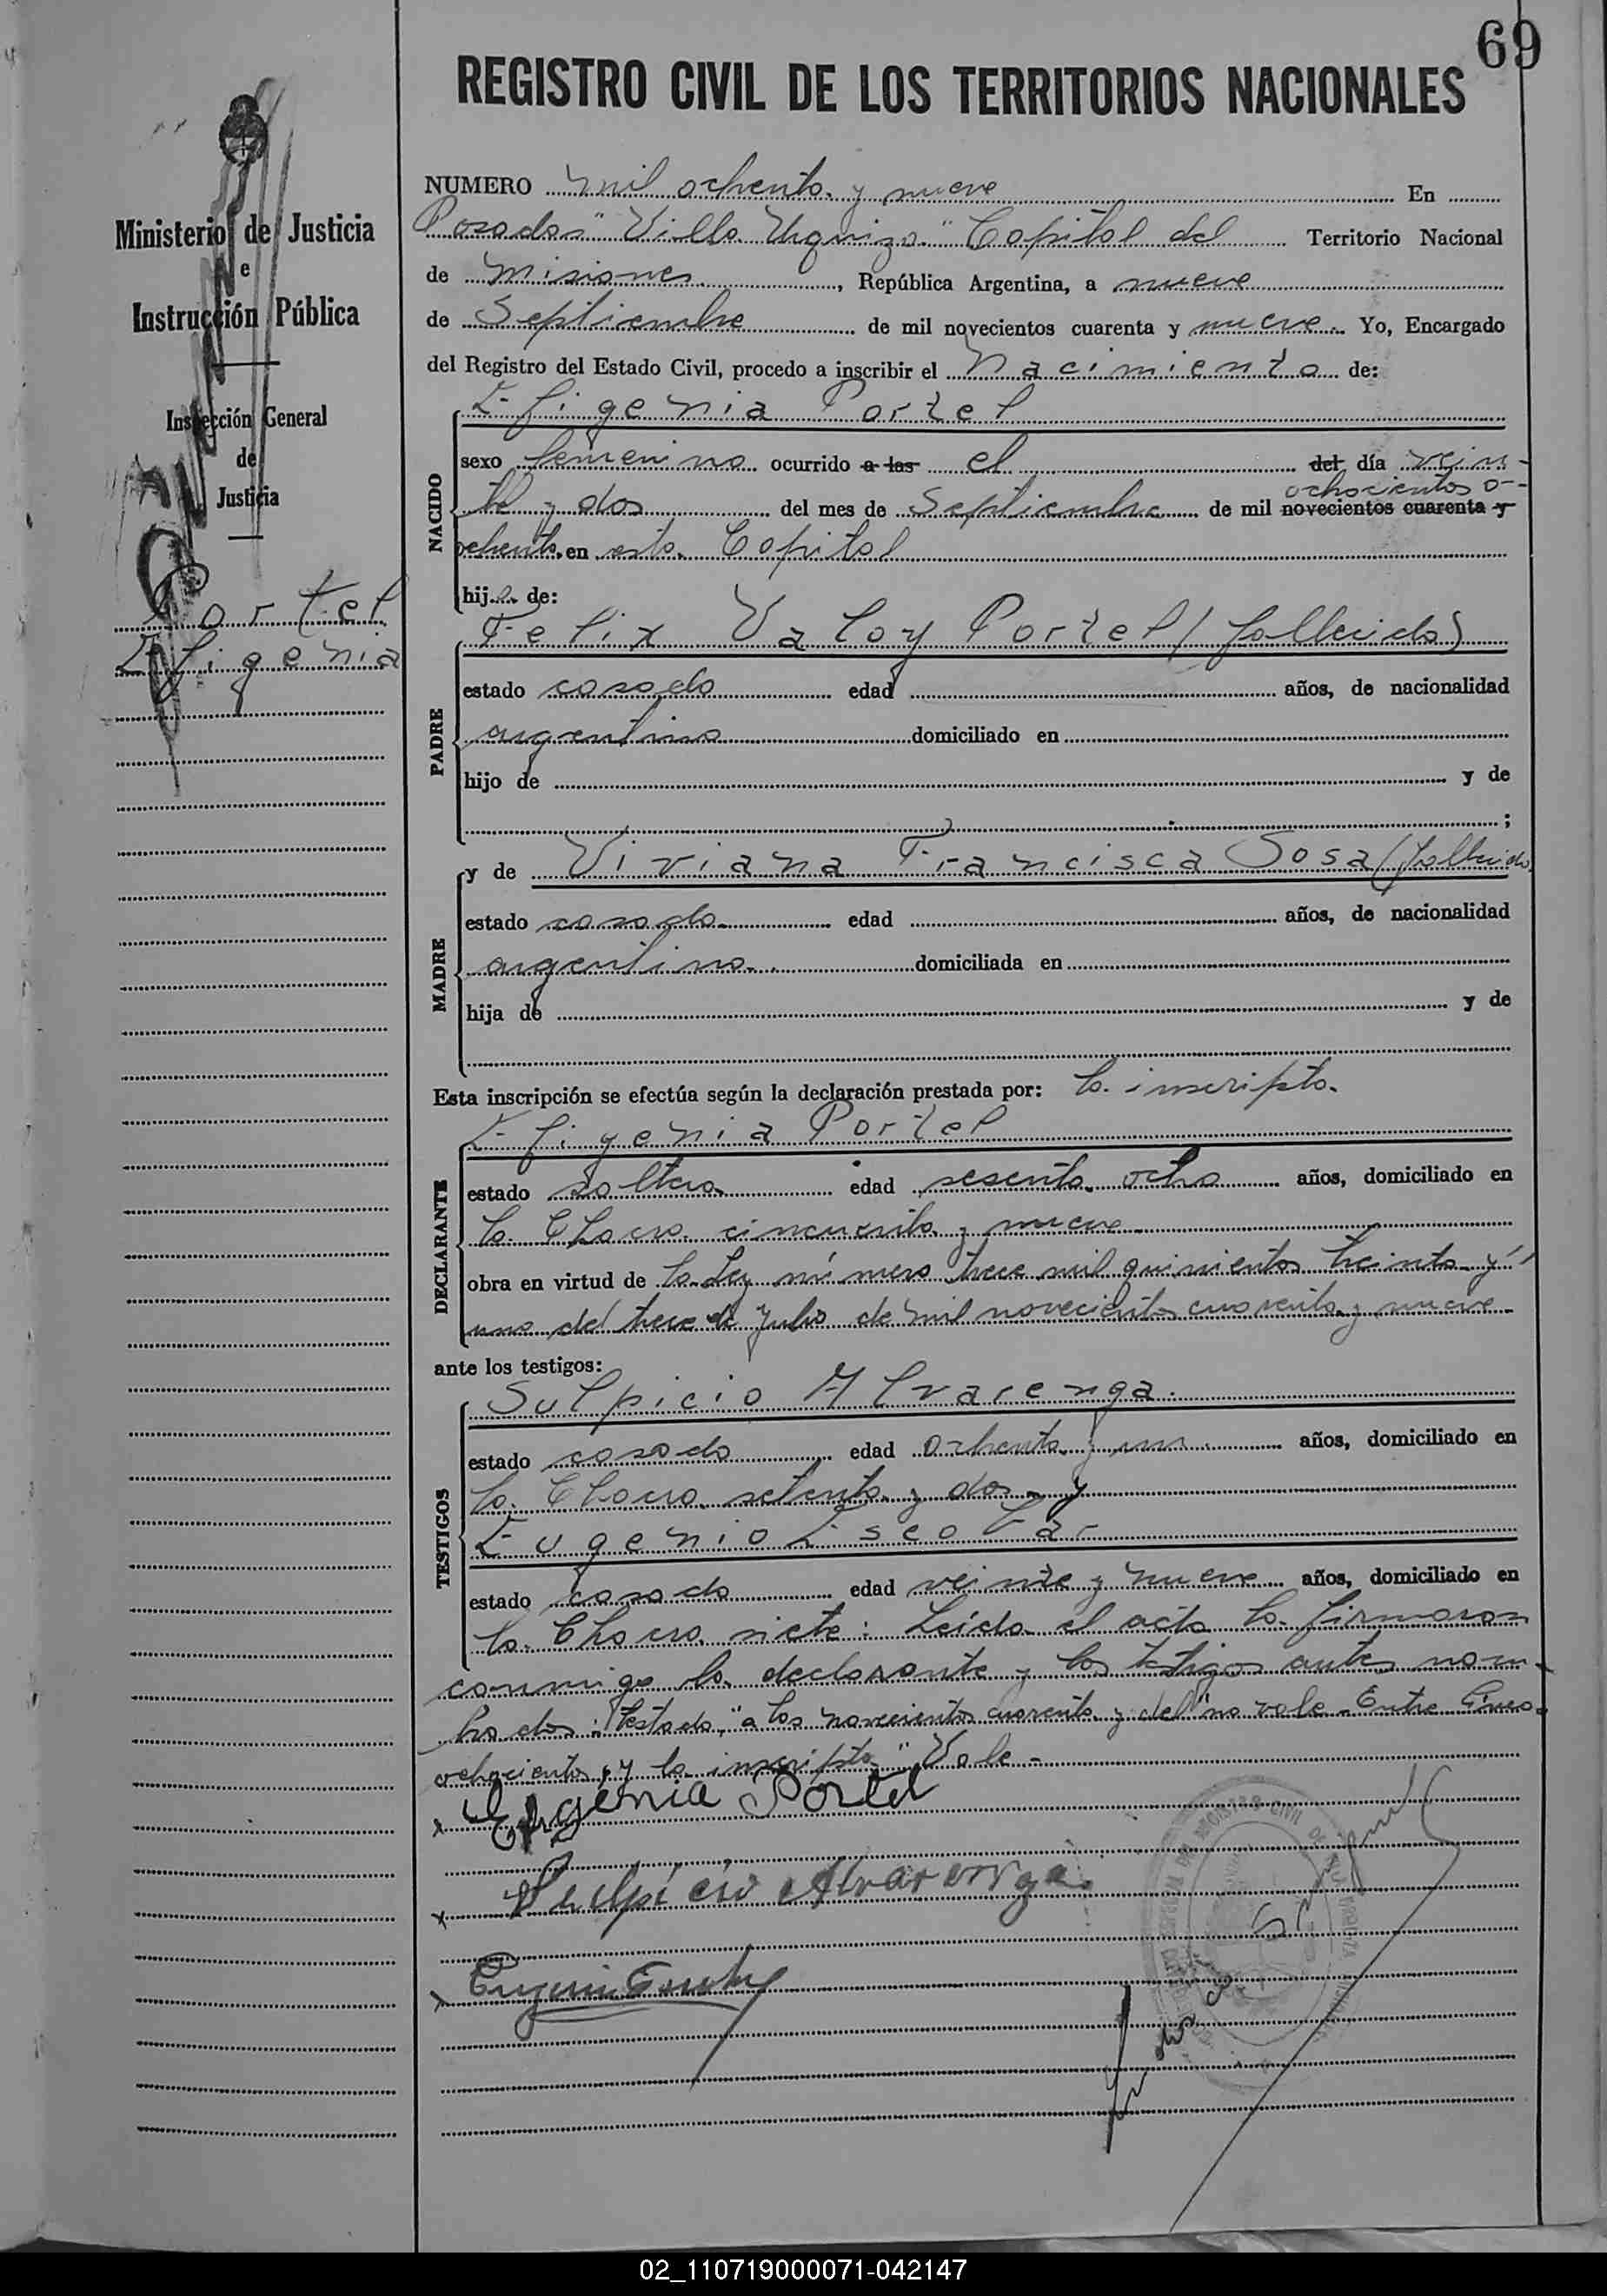 69
REGISTRO CIVIL DE LOS TERRITORIOS NACIONALES
Ministerio de Justicia
e
Instrucción Pública
Inspección General
de
Justicia
Portel
Efigenia
NUMERO mil ochenta y nueve En
Posadas "Villa Urquiza" Capital del Territorio Nacional
de Misiones, República Argentina, a nueve
de Septiembre de mil novecientos cuarenta y nueve. Yo, Encargado
del Registro del Estado Civil, procedo a inscribir el Nacimiento de:
Efigenia Portel
NACIDO
sexo femenino ocurrido a las el del día vein-
te y dos del mes de Septiembre de mil novecientos cuarenta y
ochocientos o-
chenta en esta Capital
hija de:
Felix Valoy Portel (fallecido)
PADRE
estado casado edad años, de nacionalidad
argentino domiciliado en
hijo de y de
;
y de Viviana Francisca Sosa (fallecida)
MADRE
estado casada edad años, de nacionalidad
argentina domiciliada en
hija de y de
Esta inscripción se efectúa según la declaración prestada por: la inscripta.
Efigenia Portel
DECLARANTE
estado soltera edad sesenta ocho años, domiciliado en
la Chacra cincuenta y nueve
obra en virtud de la Ley número trece mil quinientos treinta y
uno del trece de Julio de mil novecientos cuarenta y nueve
ante los testigos:
Sulpicio Alvarenga
TESTIGOS
estado casado edad ochenta y un años, domiciliado en
la Chacra setenta y dos y
Eugenio Escobar
estado casado edad veinte y nueve años, domiciliado en
la Chacra siete: Leída el acta la firmaron
conmigo la declarante y los testigos antes nom-
brados: Testado: "a las novecientos cuarenta y del" no vale. Entre lineas
ochocientos, y la inscripta" Vale-
x Efigenia Portel
x Sulpicio Alvarenga
x Eugenio Escobar
02_110719000071-042147